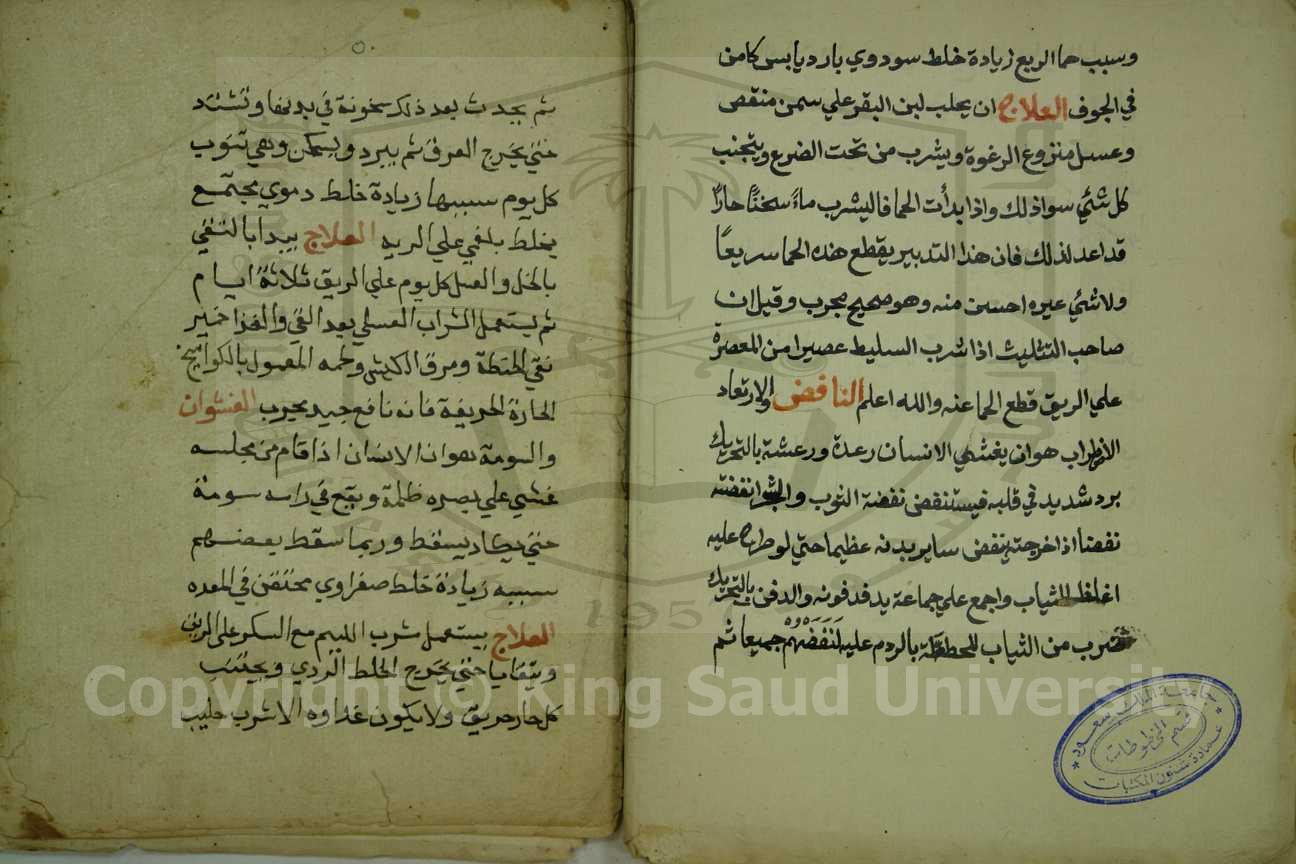 وسبب حما الربع زيادة خلط سودوي بارد يابس كامن
في الجوف العلاج ان يحلب لبن البقر علي سمن منقص
وعسل منزوع الرغوة ويشرب من تحت الضرع ويتجنب
كل شئي سواذلك واذا بدأت الحما فاليشرب ماءً سخنًا حارًا
قد اعد لذلك فان هذا التدبير يقطع هذه الحما سريعًا
ولا شئي غيره احسن منه وهو صحيح مجرب وقيل ان
صاحب التثليث اذا شرب السليط عصيرا من المعصرة
علي الريق قطع الحما عنه والله اعلم النافض والارتعاد
هو ان يغشي الانسان رعدة ورعشة بالتحريك
برد شديد في قلبه فيستنفض نفضة الثوب نفضته
نفضا اذا ينفض ساير بدنه عظيما حتي لو طرح عليه
اغلظ الثياب واجمع علي جماعة يدفدفونه والدفن بالتحريك
ضرب من الثياب بالردم عليه لَنَفَضَهُمْ جميعا ثم
٥
ثم يحدث بعد ذلك سخونة في بدنها وتشتد
حتي يخرج العرق ثم يبرد ويسكن وهي تنوب
كل يوم سببها زيادة خلط دموي يجتمع
بخلط بلغمي علي العلاج يبدا بالتقي
بالخل والعسل كل يوم علي الريق ثلاثة ايام
ثم يستعمل الشراب العسلي بعد القي والغذا خمير
نقي الحنطة ومرق الكبش ولحمه المعمول بالكواميخ
الحارة الحريفة فانه نافع جيد مجرب الغشوان
والسومة هو ان الانسان اذا قام من مجلسه
غشي علي بصره ظلمة ويقع في راسه سومة
حتي يكاد يسقط وربما سقط بعضهم
سببه زيادة خلط صفراوي محتقن في المعده
العلاج يستعمل شرب مع السكر علي الريق
ويتقايا حتي يخرج الخلط الردي ويجتنب
كل حار حريق ولا يكون غداوه الا شرب حليب
جامعة الملك سعود
قسم المخطوطات
عمادة شئون المكتبات
1957
Copyright © King Saud University